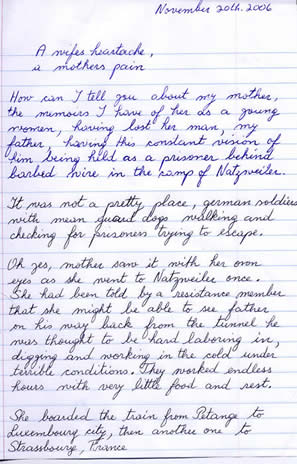 November 20th. 2006
A wifes heartache,
a mothers pain
How can I tell you about my mother,
the memoirs I have of her as a young
women, having lost her man, my
father, having this constant vision of
him being held as a prisoner behind
barbed wire in the camp of Natzweiler.
It was not a pretty place, german soldiers
with mean guard dogs walking and
checking for prisoners trying to escape.
Oh yes, mother saw it with her own
eyes as she went to Natzweiler once.
She had been told by a resistance member
that she might be able to see father
on his way back from the tunnel he
was thought to be hard laboring in,
digging and working in the cold under
terrible conditions. They worked endless
hours with very little food and rest.
She boarded the train from Petange to
Luxembourg city, then another one to
Strassbourg, France